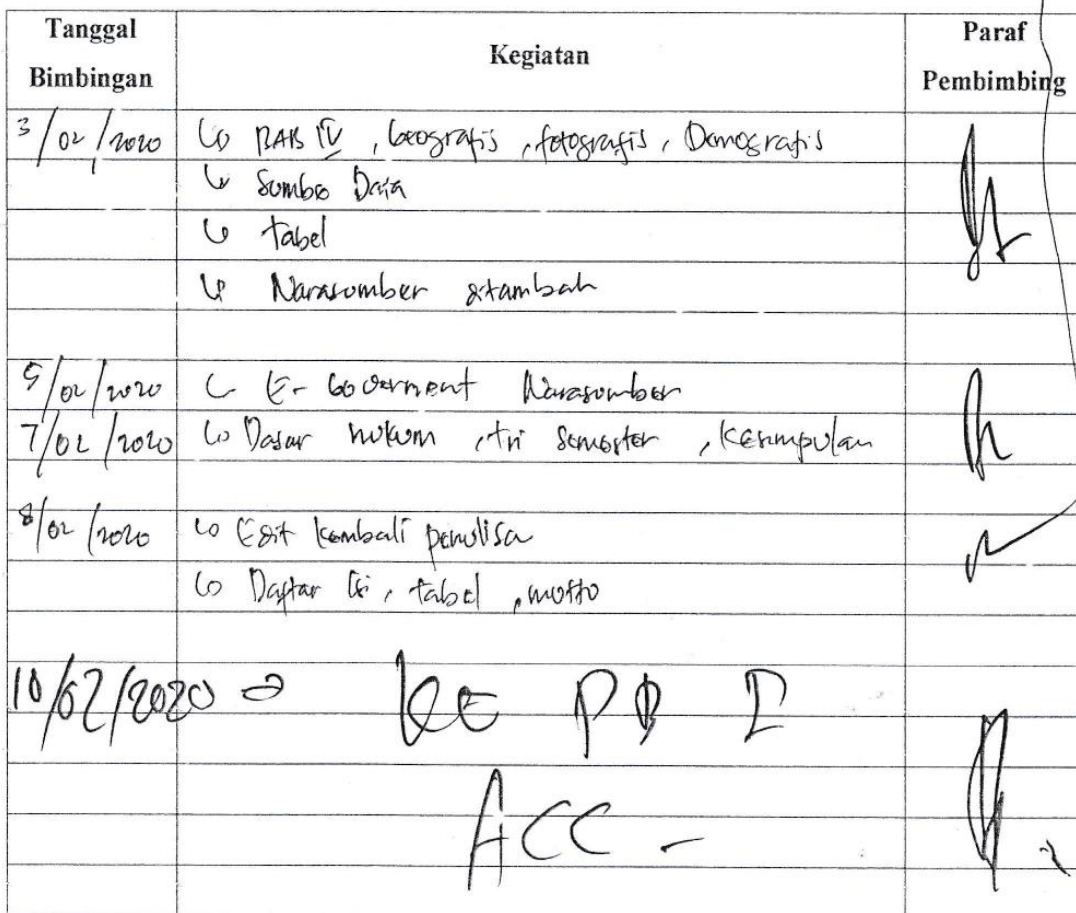 Tanggal Bimbingan Kegiatan Paraf Pembimbing
3/02/2020 BAB IV, Geografis, fotografis, Demografis
Sumber Data
tabel
Narasumber ditambah
5/02/2020 E-Goverment Narasumber
7/02/2020 Dasar hukum, tri semester, Kesimpulan
8/02/2020 Edit kembali penulisa
Daftar isi, tabel, motto
10/02/2020 KE PB I
ACC -